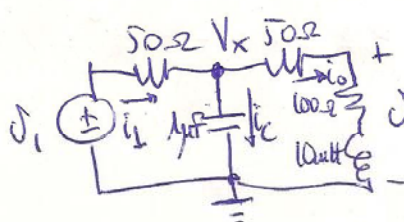 50Ω Vx 50Ω
+
io
100Ω
i1 1μf ic
10mH
-